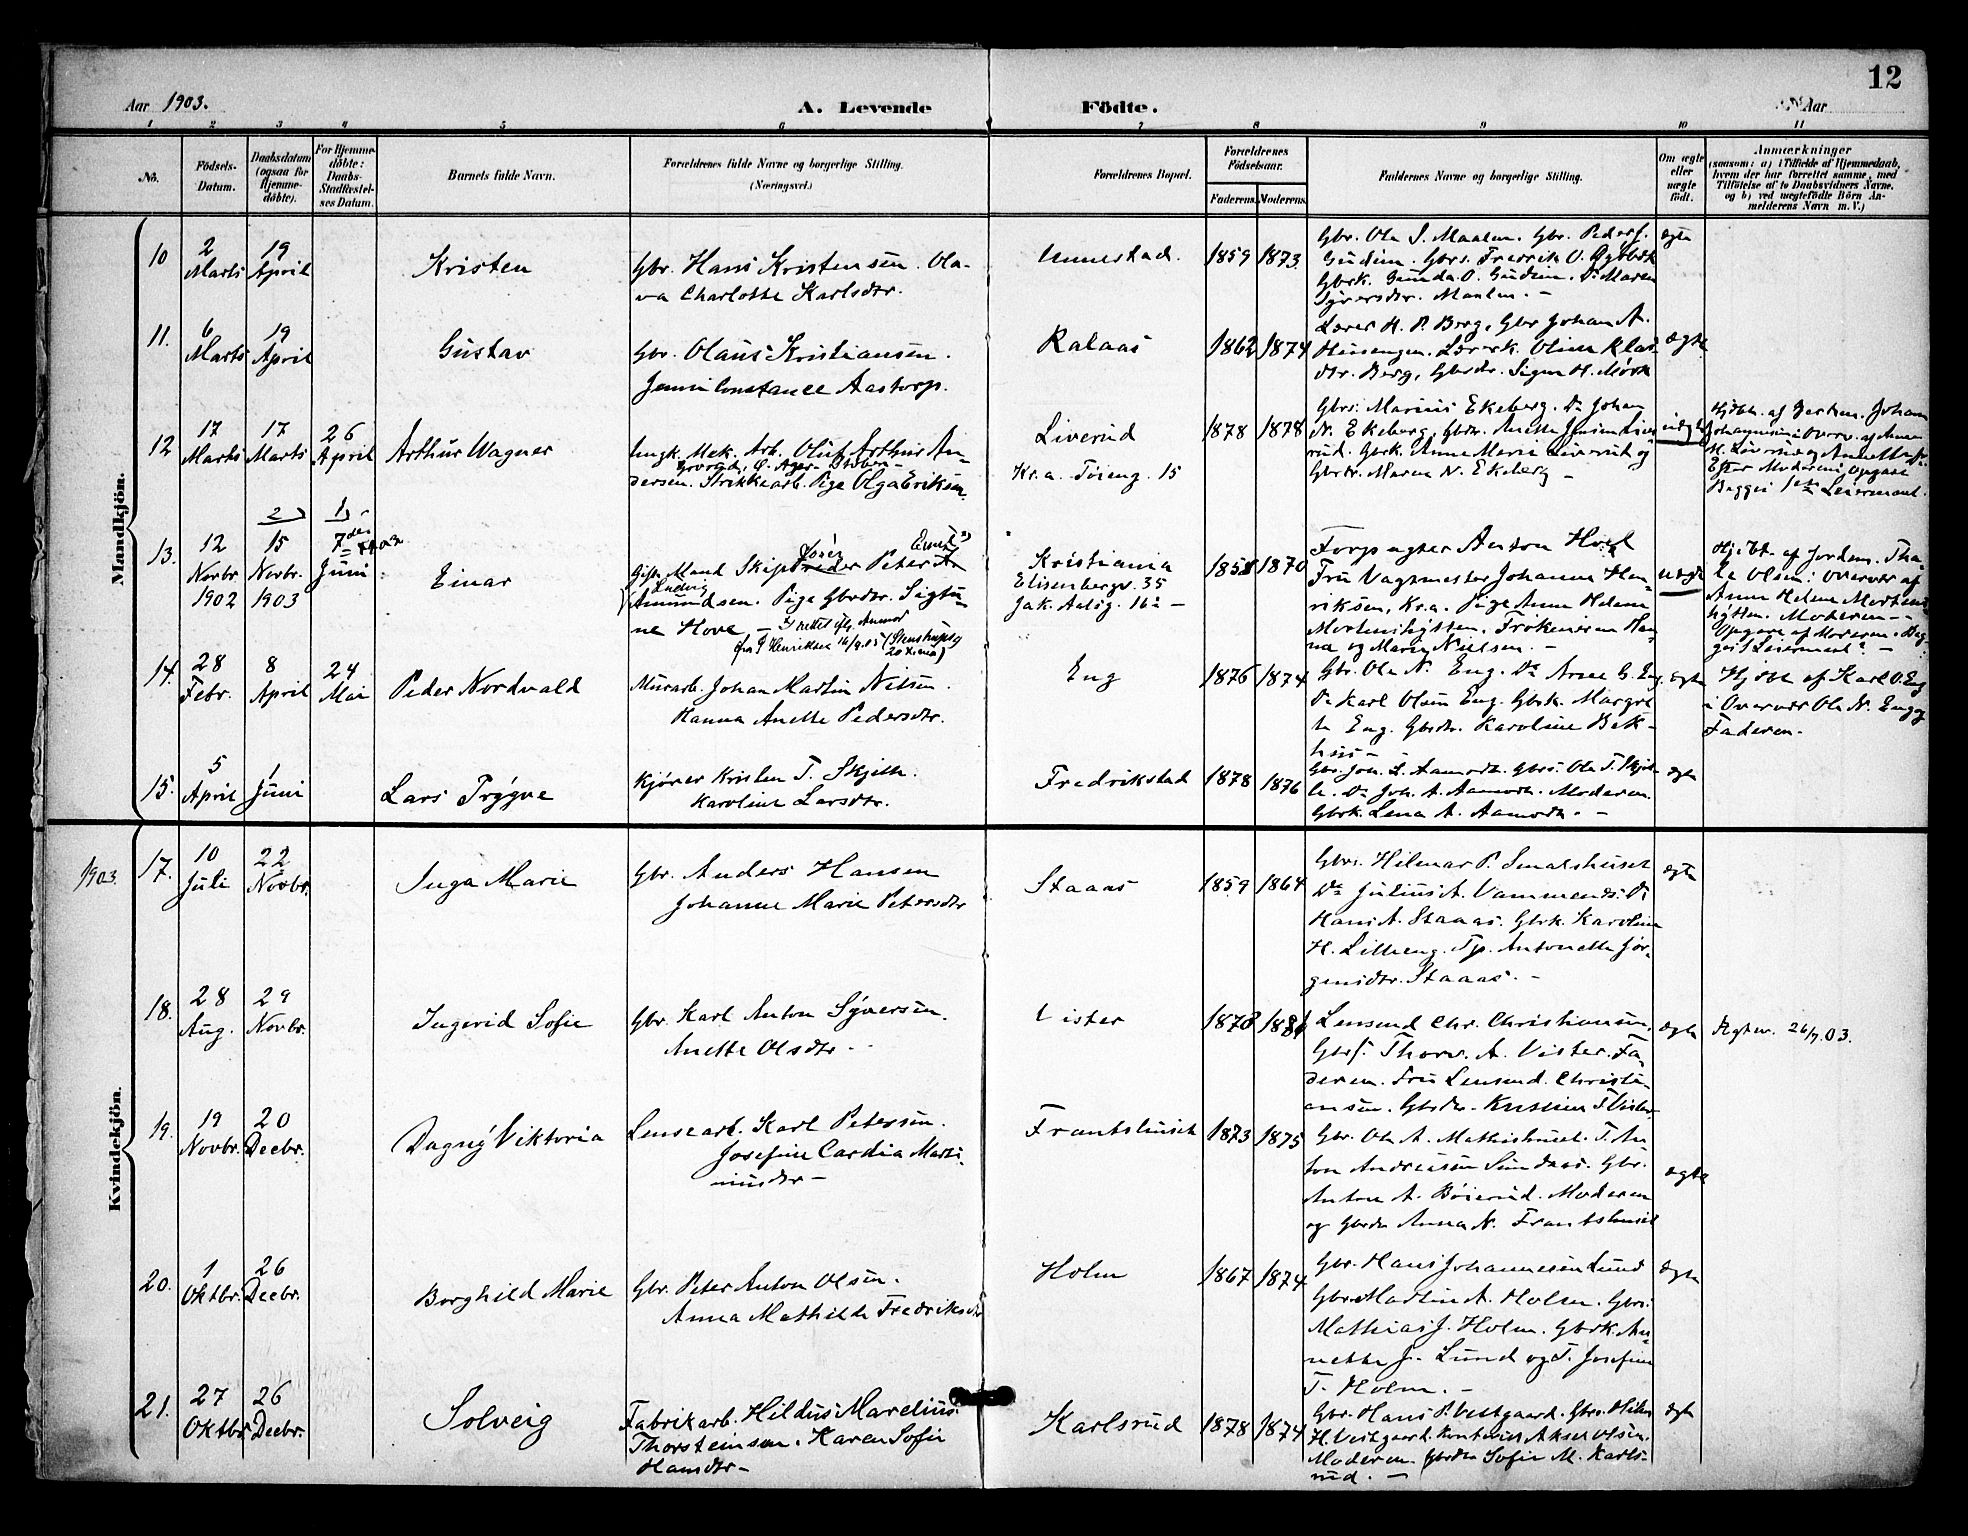 12
Aar 1903.
A. Levende Födte.
Aar
1 2 3 4 5 6 7 8 9 10 11
Nô.
Födsels-Datum.
Daabsdatum (ogsaa for Hjemme-döbte).
For Hjemme-döbte: Daabs-Stadfæstel-ses Datum.
Barnets fulde Navn.
Forældrenes fulde Navne og borgerlige Stilling.
(Næringsvei.)
Forældrenes Bopæl.
Forældrenes Födselsaar.
Faderens. Moderens.
Faddernes Navne og borgerlige Stilling.
Om ægte eller uægte födt.
Anmærkninger
(saasom: a) i Tilfælde af Hjemmedaab, hvem der har forrettet samme, med Tilföielse af to Daabsvidners Navne, og b) ved uægtefödte Börn An-melderens Navn m. V.)
Mandkjön.
10 2 Marts 19 April Kristen
Gbr. Hans Kristensen. Ola-
va Charlotte Karlsdtr.
Unnestad. 1859 1873
Gbr. Ole S. Maalen. Gbr. Peder J.
Gudim. Gbrs. Fredrik O.
Gbrk. Gunda O. Gudim. Do Maren
Syversdtr. Maalen. –
ægte
11. 6 Marts 19 April Gustav
Gbr. Olaus Kristiansen.
Jenni Constance Aastorp.
Kalaas 1862 1874
Lærer H. P. Berg, Gbr Johan A.
Huusengen. Lærerk. Oline Klas-
dtr. Berg, Gbrdtr. Signe H. Mörk
ægte
12 17 Marts 17 Marts 26 April Arthur Wagner
Ungk. Mek. Arb. Oluf Arthur An-
dersen. Strikkearb. Pige Olga Eriksen
Liverud
Kr.a. Töieng. 15
1878 1878
Gbrs. Marius Ekeberg. Do Johan
N. Ekeberg, Gbrdtr. Anette Jensine Live-
rud. Gbrk. Anne Marie Liverud og
Gbrdtr. Maren N. Ekeberg –
uægte
Hjdbt. af Jordem. Johanne
Johannesen i Overv. af Anne
M. Liverud og Annette
Efter Moderens Opgave
Begges 1ste Leiermaal.
13. 12 Novbr 1902 2) 15 Novbr. 1903 1) 7de Juni Einar
Gift Mand Skipsreder Peter
Ludvig
Amundsen. Pige Gbrdtr. Sigtu-
ne Hove –
Kristiania
Elisenbergv. 35
Jak. Aalsg. 16a –
1858 1870
Forpagter Anton Hoel
Fru Vagtmester Johanne Hen-
riksen, Kr.a. Pige Anne Helene
Mortenshytten. Frökenerne Han-
na og Marie Nielsen. –
uægte
Hjebt. af Jordem. Tha-
le Olsen i Overvær af
Anne Helene Mortens-
hytten. Moderen –
Opgave af Moderen. Beg-
ges 1 Leiermaal. –
14. 28 Febr. 8 April 24 Mai Peder Nordvald
Murarb. Johan Martin Nilsen.
Hanna Anette Pedersdtr.
Eng 1876 1874
Gbr. Ole N. Eng. Do Arne G. Eng.
Do Karl Olsen Eng. Gbrk. Margre-
te Eng. Gbrdtr. Karoline Bek-
hus –
ægte
Hjdbt af Karl O. Eng
i Overvær Ole N. Eng og
Faderen.
15. 5 April 1 Juni Lars Trygve
Kjörer Kristen T. Skjelle.
Karoline Larsdtr.
Fredrikstad 1878 1876
Gbr. Joh. L. Aamodt. Gbrs. Ole T. Skjel-
le. Do Joh. A. Aamodt. Moderen.
Gbrk. Lena A. Aamodt. –
ægte
Kvindekjön.
1903 17. 10 Juli 22 Novbr. Inga Marie
Gbr. Anders Hansen
Johanne Marie Petersdtr
Staaas 1859 1864
Gbrs. Hilmar P. Smalshuset
Do Julius A. Vammenes. Do
Hans A. Staaas. Gbrk. Karoline
H. Lilleeng. Tp. Antonette Jör-
gensdtr. Staaas. –
ægte
18. 28 Aug. 29 Novbr. Ingerid Sofie
Gbr. Karl Anton Syversen.
Anette Olsdtr. –
Vister 1878 1881
Lensmd Chr. Christiansen.
Gbrf. Thorv. A. Vister. Fa-
deren. Fru Lensmd. Christi-
ansen. Gbrdtr. Kristine T Vister
ægte
Ægtev. 26/7.03.
19. 19 Novbr. 20 Decbr. Dagny Viktoria
Lensearb. Karl Petersen.
Josefine Cardia Marti-
nusdtr –
Frantshuset 1873 1875
Gbr. Ole A. Mathishuset. T. An-
ton Andreasen Sundaas. Gbr.
Anton A. Böierud. Moderen
og Gbrdtr Anna N. Frantshuset
ægte
20. 1 Oktbr. 26 Decbr. Borghild Marie
Gbr. Peter Anton Olsen.
Anna Mathilde Fredriksdtr
Holm 1867 1874
Gbr. Hans Johannesen Lund
Gbr. Martin A. Holm. Gbrs.
Mathias J. Holm. Gbrk. An-
nette J. Lund og T. Josefine
T. Holm. –
ægte
21. 27 Oktbr 26 Decbr. Solveig
Fabrikarb. Hildus Marelius
Thorsteinsen. Karen Sofie
Hansdtr –
Karlsrud 1878 1874
Gbr. Hans P. Vestgaard. Gbrs. Hilm
H. Vestgaard. Kontorist Aksel Olsen.
Moderen. Gbrdtr Sofie M. Karls-
rud. –
ægte